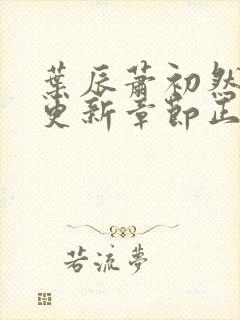 葉辰蕭初然
更新章節正
若流夢